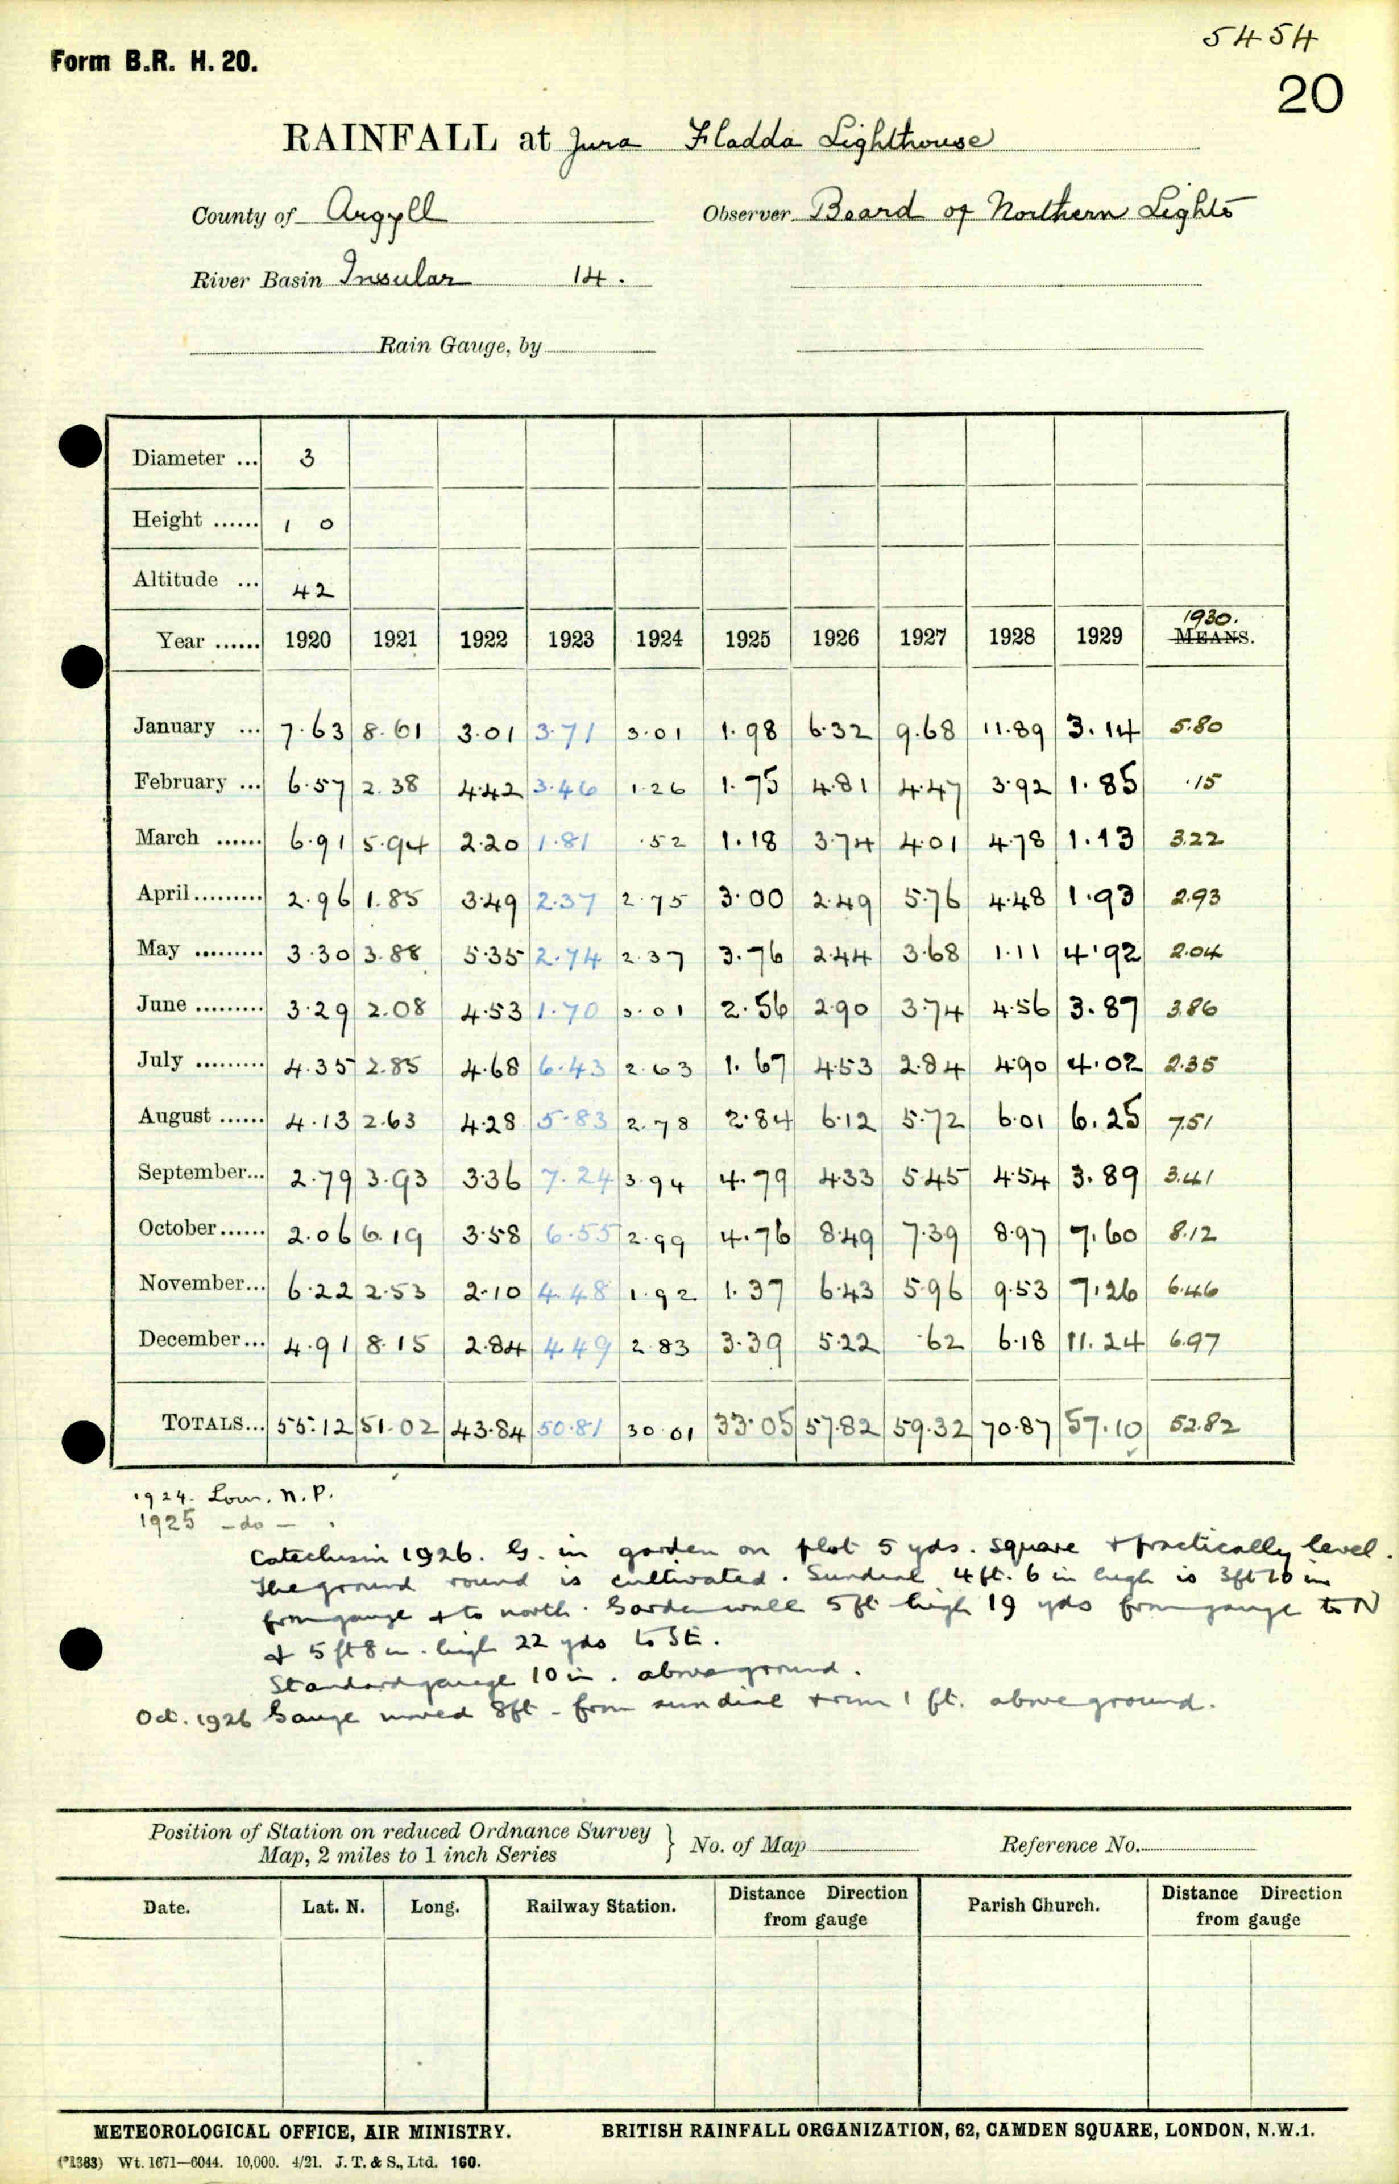 5454
Form B.R. H. 20.
20
RAINFALL at Jura Fladda Lighthouse
County of Argyll Observer Board of Northern Lights
River Basin Insular 14.
Rain Gauge, by
Diameter ... 3
Height ...... 1 0
Altitude ... 42
1930.
Year ...... 1920 1921 1922 1923 1924 1925 1926 1927 1928 1929 MEANS.
January ... 7.63 8.61 3.01 3.71 3.01 1.98 6.32 9.68 11.89 3.14 5.80
February ... 6.57 2.38 4.42 3.46 1.26 1.75 4.81 4.47 3.92 1.85 .15
March ...... 6.91 5.94 2.20 1.81 .52 1.18 3.74 4.01 4.78 1.13 3.22
April......... 2.96 1.85 3.49 2.37 2.75 3.00 2.49 5.76 4.48 1.93 2.93
May ......... 3.30 3.88 5.35 2.74 2.37 3.76 2.44 3.68 1.11 4.92 2.04
June ......... 3.29 2.08 4.53 1.70 3.01 2.56 2.90 3.74 4.56 3.87 3.86
July ......... 4.35 2.85 4.68 6.43 2.63 1.67 4.53 2.84 4.90 4.02 2.35
August ...... 4.13 2.63 4.28 5.83 2.78 2.84 6.12 5.72 6.01 6.25 7.51
September... 2.79 3.93 3.36 7.24 3.94 4.79 4.33 5.45 4.54 3.89 3.41
October...... 2.06 6.19 3.58 6.55 2.99 4.76 8.49 7.39 8.97 7.60 8.12
November... 6.22 2.53 2.10 4.48 1.92 1.37 6.43 5.96 9.53 7.26 6.46
December... 4.91 8.15 2.84 4.49 2.83 3.39 5.22 .62 6.18 11.24 6.97
TOTALS... 55.12 51.02 43.84 50.81 30.01 33.05 57.82 59.32 70.87 57.10 52.82
1924. Low. N.P.
1925 - do - .
Catechism 1926. G. in garden on plot 5 yds. square & practically level.
The ground round is cultivated. Sundial 4 ft. 6 in high is 3ft 10 in
from gauge & to north. Garden wall 5 ft high 19 yds from gauge to N
& 5 ft 8 in. high 22 yds to SE.
Standard gauge 10 in. above ground.
Oct. 1926 Gauge moved 8ft - from sundial & rim 1 ft. above ground.
Position of Station on reduced Ordnance Survey
Map, 2 miles to 1 inch Series } No. of Map Reference No.
Date. Lat. N. Long. Railway Station. Distance from gauge Direction Parish Church. Distance from gauge Direction
METEOROLOGICAL OFFICE, AIR MINISTRY. BRITISH RAINFALL ORGANIZATION, 62, CAMDEN SQUARE, LONDON, N.W.1.
(*1383) Wt. 1671—6044. 10,000. 4/21. J. T. & S., Ltd. 160.